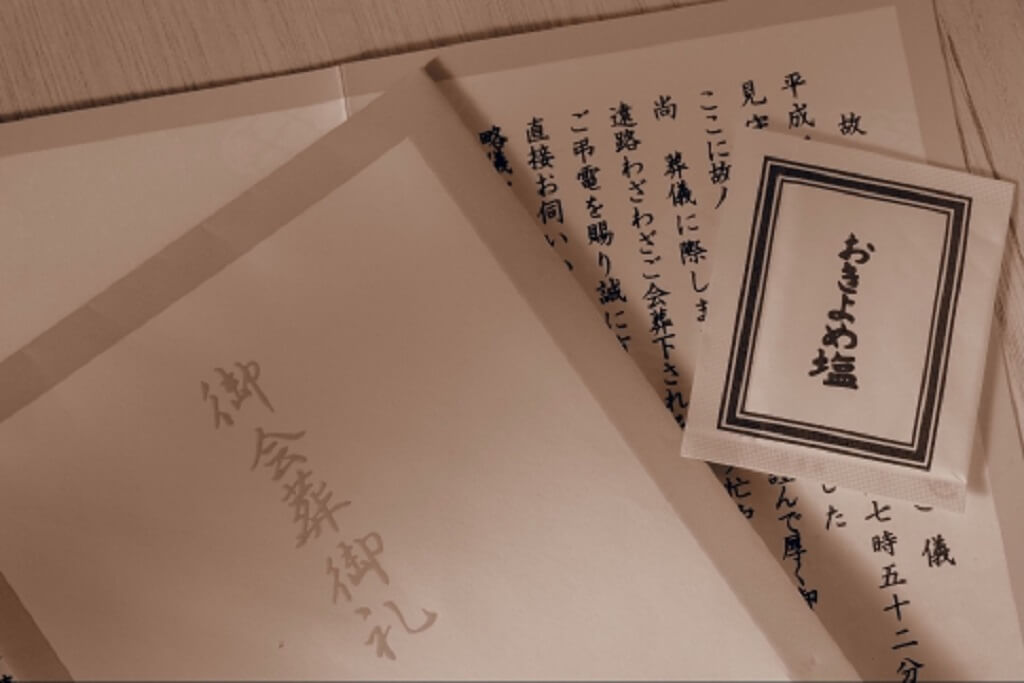 故 儀
平成 七時五十二分
見 した
ここに故 んで厚く御
尚 葬儀に際しま 忙
遠路わざわざご会葬下され
ご弔電を賜り誠に
直接お伺い
略儀
おきよめ塩
御会葬御礼